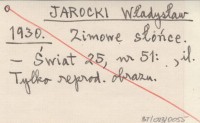 JAROCKI Władysław
1930. Zimowe słońce.
- Świat 25, nr 51: , il.
Tylko reprod. obrazu.